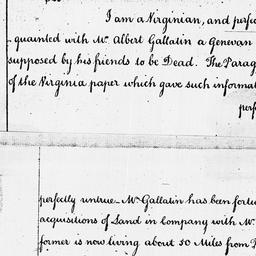 I am a Virginian, and perfe
quainted with Mr. Albert Gallatin a Genevan
supposed by his friends to be Dead. The Parag
of the Virginia paper which gave such informat
perf
perfectly untrue. Mr. Gallatin has been fortu
acquisitions of Land in company with Mr.
former is now living about 50 Miles from P